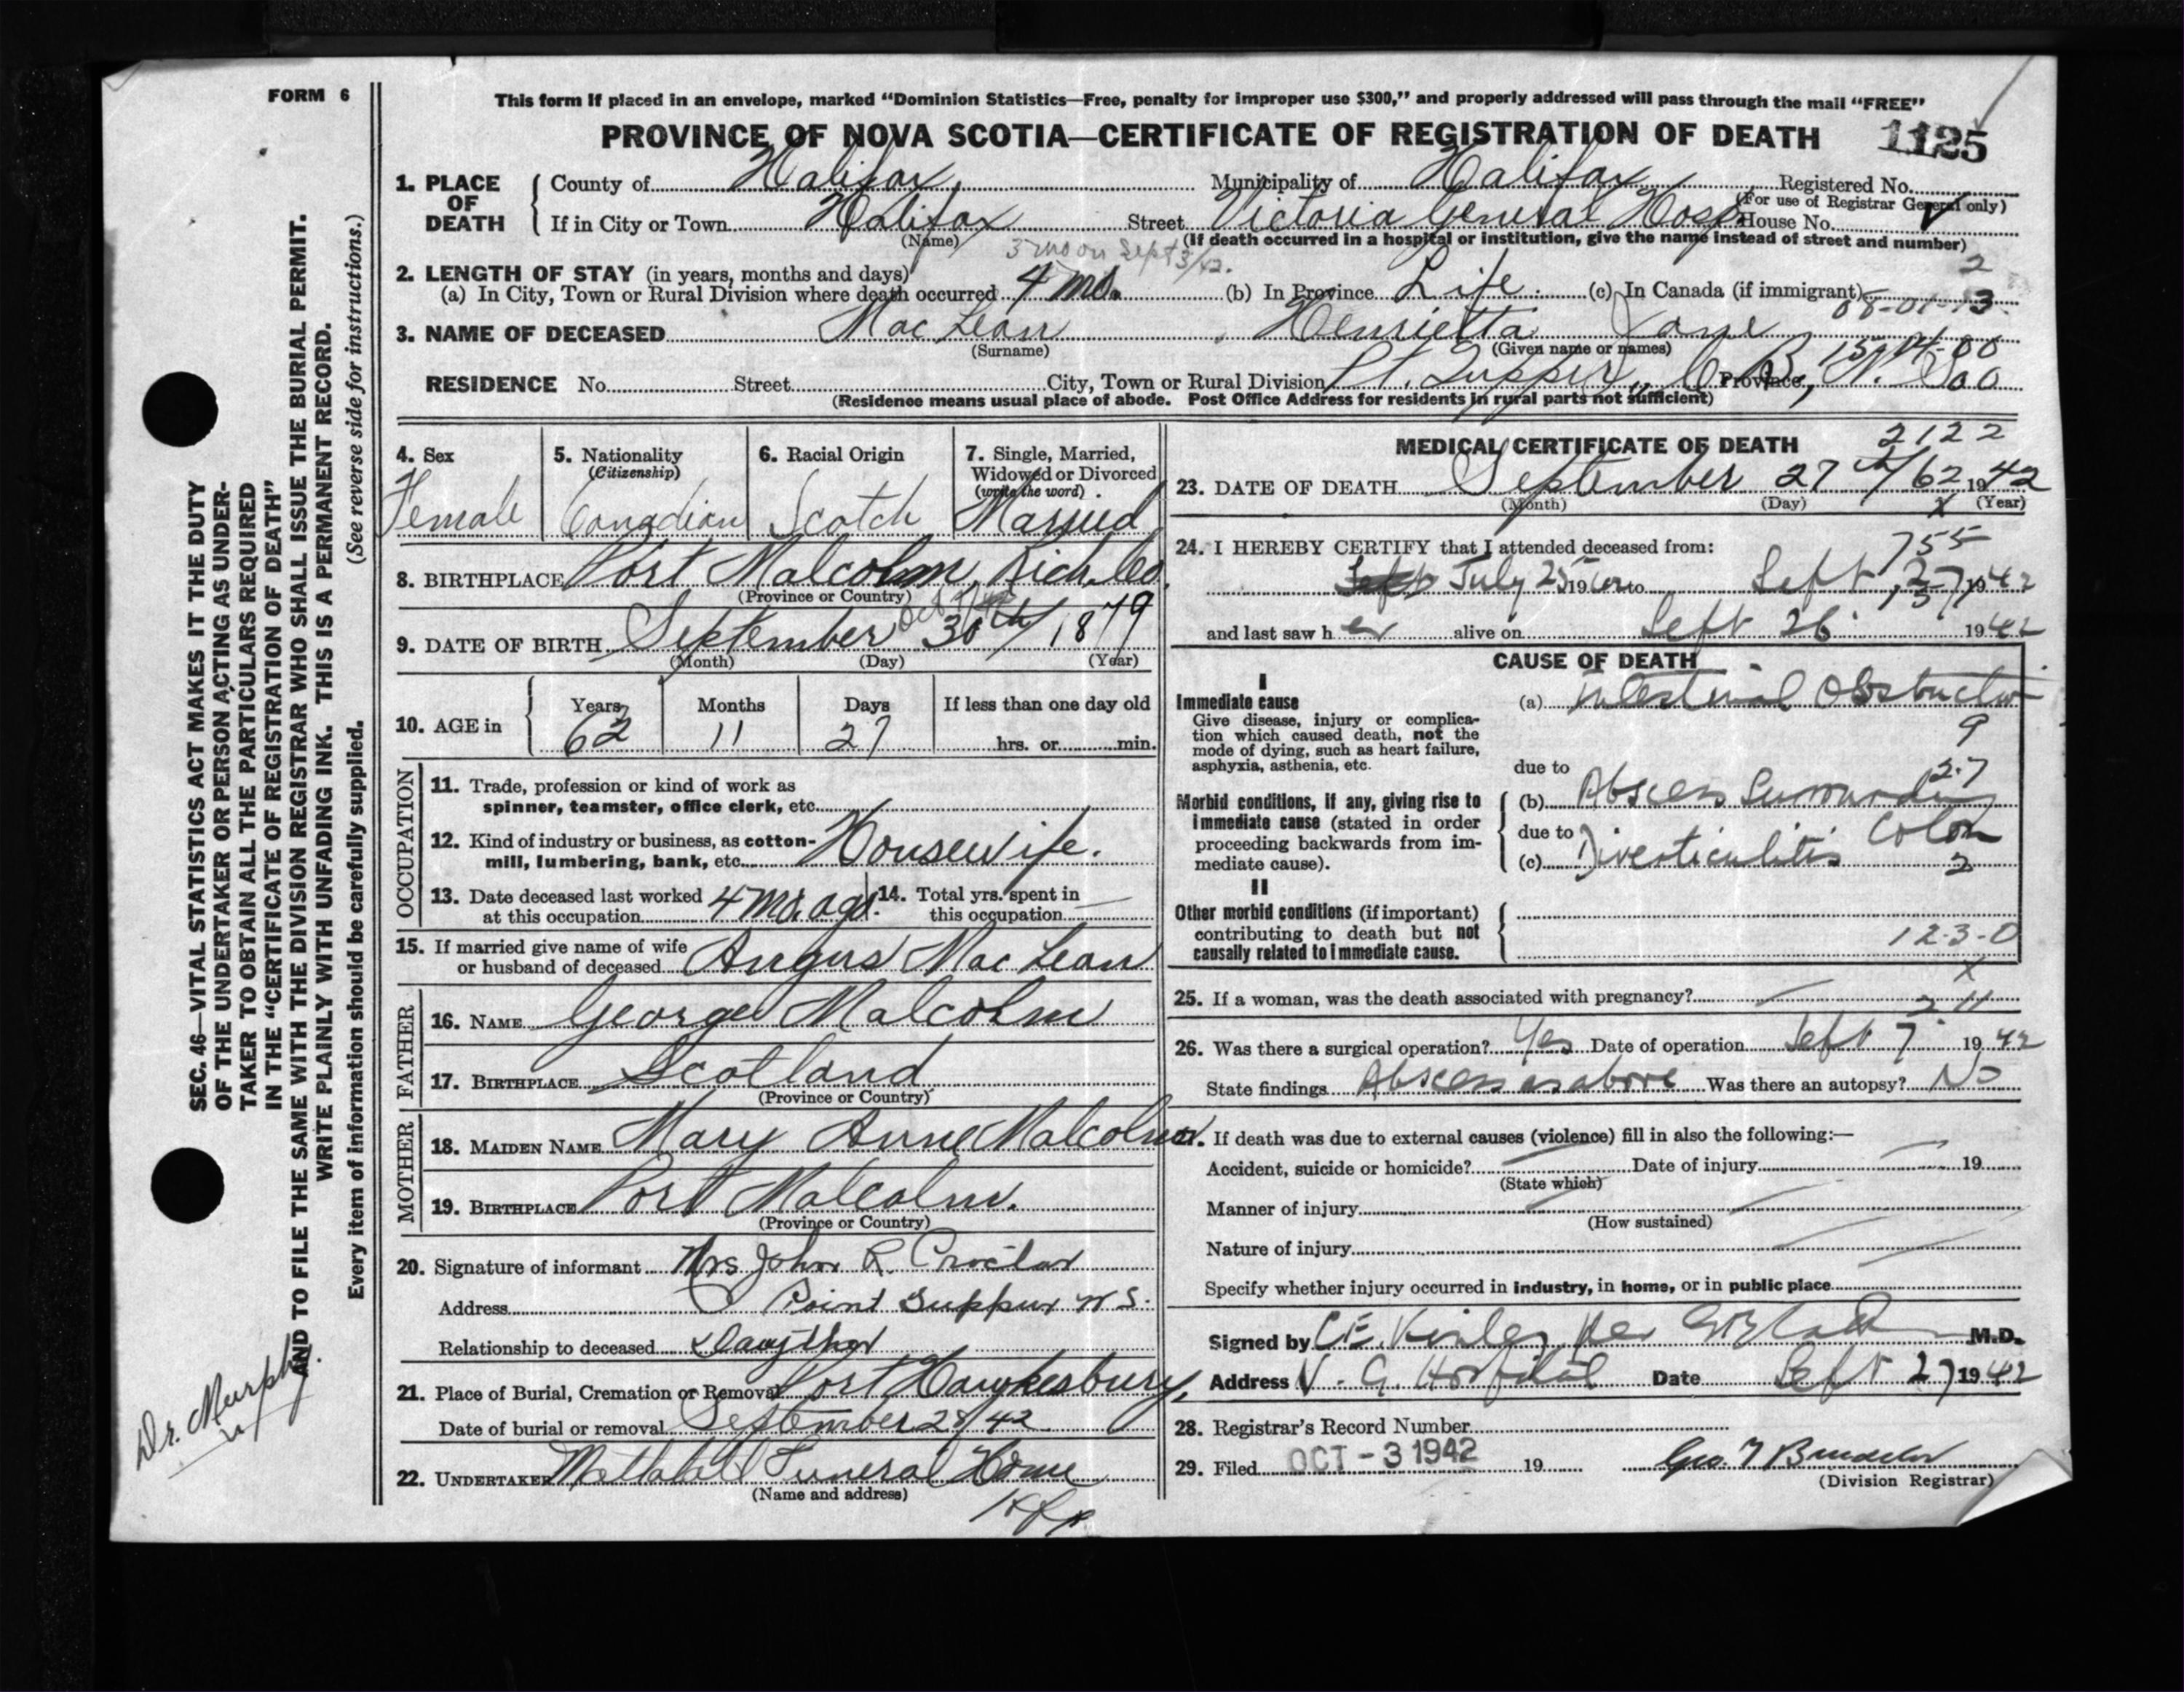 FORM 6
This form if placed in an envelope, marked “Dominion Statistics—Free, penalty for improper use $300,” and properly addressed will pass through the mail “FREE”
PROVINCE OF NOVA SCOTIA—CERTIFICATE OF REGISTRATION OF DEATH 1125
1. PLACE OF DEATH
County of Halifax Municipality of Halifax Registered No.
(For use of Registrar General only)
If in City or Town Halifax Street Victoria General Hosp. House No.
(Name) (If death occurred in a hospital or institution, give the name instead of street and number)
3 mo on Sept 3/42. 2
2. LENGTH OF STAY (in years, months and days)
(a) In City, Town or Rural Division where death occurred 4 mo. (b) In Province Life (c) In Canada (if immigrant)
3. NAME OF DECEASED MacLean, Henrietta
(Surname) (Given name or names)
RESIDENCE No. Street City, Town or Rural Division Pt. Tupper, C. B., Province N. S.
(Residence means usual place of abode. Post Office Address for residents in rural parts not sufficient)
4. Sex
Female
5. Nationality
(Citizenship)
Canadian
6. Racial Origin
Scotch
7. Single, Married, Widowed or Divorced
(write the word)
Married
8. BIRTHPLACE Port Malcolm, Rich. Co.
(Province or Country)
9. DATE OF BIRTH September 30th/1879
(Month) (Day) (Year)
10. AGE in
Years 62 Months 11 Days 27 If less than one day old
hrs. or min.
OCCUPATION
11. Trade, profession or kind of work as
spinner, teamster, office clerk, etc.
12. Kind of industry or business, as cotton-
mill, lumbering, bank, etc. Housewife.
13. Date deceased last worked
at this occupation 4 mo. ago.
14. Total yrs. spent in
this occupation —
15. If married give name of wife
or husband of deceased Angus MacLean
FATHER
16. NAME George Malcolm
17. BIRTHPLACE Scotland
(Province or Country)
MOTHER
18. MAIDEN NAME Mary Anne Malcolm
19. BIRTHPLACE Port Malcolm.
(Province or Country)
20. Signature of informant Mrs John R. Proctor
Address Point Tupper N S.
Relationship to deceased Daughter
21. Place of Burial, Cremation or Removal Port Hawkesbury,
Date of burial or removal September 28/42
22. UNDERTAKER Funeral Home
(Name and address)
Hfx
2122
MEDICAL CERTIFICATE OF DEATH
23. DATE OF DEATH September 27th/62 1942
(Month) (Day) (Year)
x
755
24. I HEREBY CERTIFY that I attended deceased from:
July 25 1942 to Sept 27 1942
and last saw her alive on Sept 26 1942
CAUSE OF DEATH
I
Immediate cause
Give disease, injury or complica-
tion which caused death, not the
mode of dying, such as heart failure,
asphyxia, asthenia, etc.
(a) Intestinal Obstruction
9
due to
Morbid conditions, if any, giving rise to
immediate cause (stated in order
proceeding backwards from im-
mediate cause).
(b) Abscess Surrounding Colon
due to
(c) Diverticulitis
II
Other morbid conditions (if important)
contributing to death but not
causally related to immediate cause.
12-3-0
x
25. If a woman, was the death associated with pregnancy? —
2 11
26. Was there a surgical operation? Yes Date of operation Sept 7 1942
State findings Abscess as above Was there an autopsy? No
27. If death was due to external causes (violence) fill in also the following:—
Accident, suicide or homicide? Date of injury 19
(State which)
Manner of injury
(How sustained)
Nature of injury
Specify whether injury occurred in industry, in home, or in public place
Signed by C E. Kinley per M.D.
Address V. G. Hospital Date Sept 27 1942
28. Registrar’s Record Number
29. Filed OCT - 3 1942 19
(Division Registrar)
SEC. 46—VITAL STATISTICS ACT MAKES IT THE DUTY
OF THE UNDERTAKER OR PERSON ACTING AS UNDER-
TAKER TO OBTAIN ALL THE PARTICULARS REQUIRED
IN THE “CERTIFICATE OF REGISTRATION OF DEATH”
AND TO FILE THE SAME WITH THE DIVISION REGISTRAR WHO SHALL ISSUE THE BURIAL PERMIT.
WRITE PLAINLY WITH UNFADING INK. THIS IS A PERMANENT RECORD.
Every item of information should be carefully supplied. (See reverse side for instructions.)
Dr. Murphy